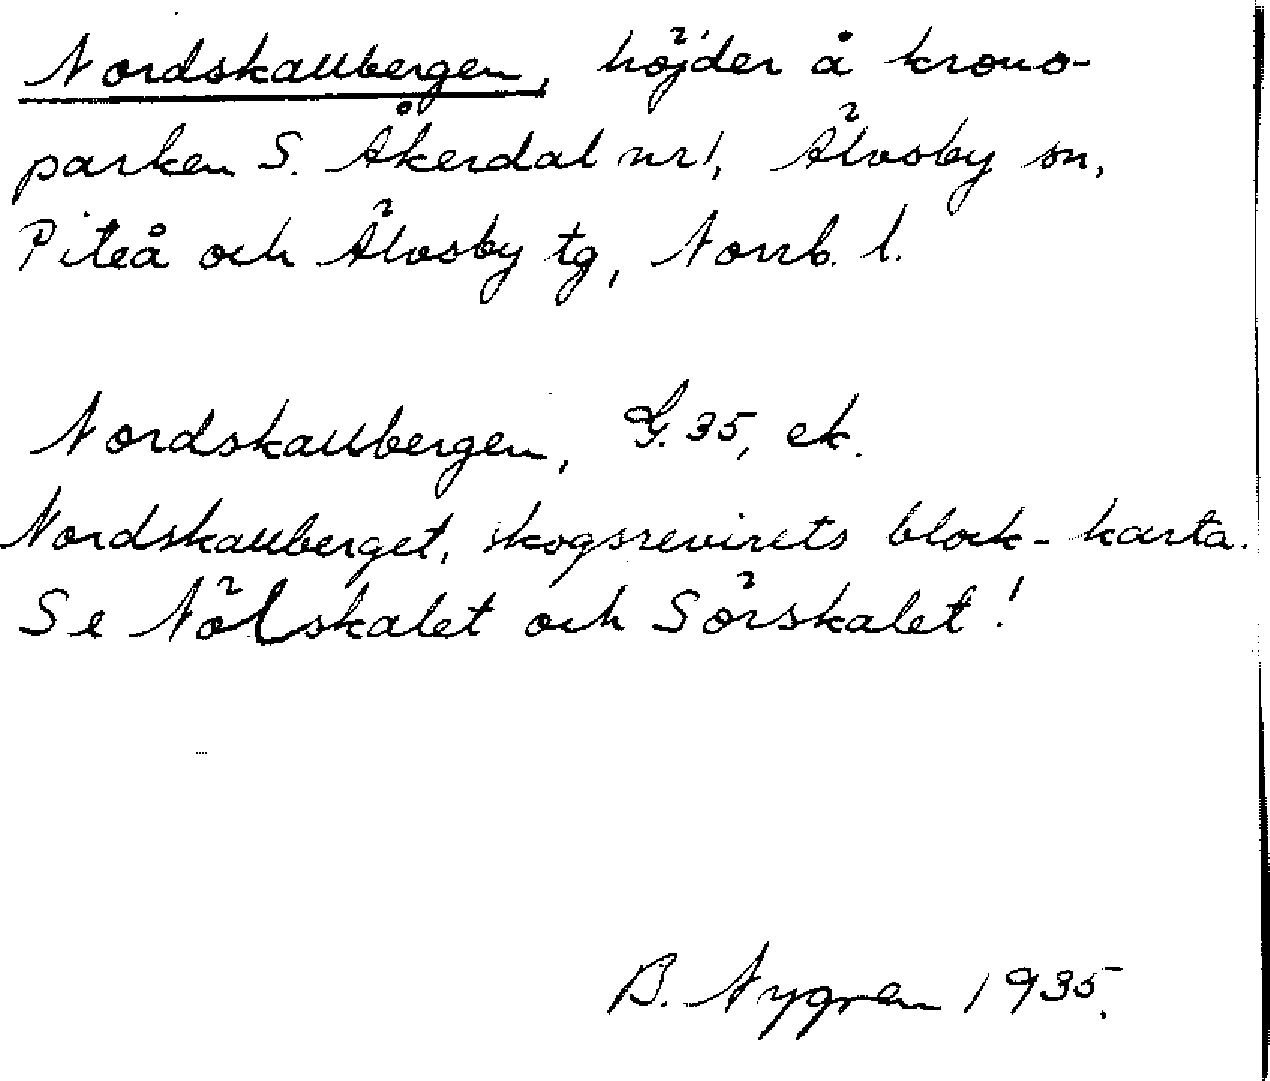 Nordskallbergen, höjder å krono-
parken S. Åkerdal nr 1, Älvsby sn,
Piteå och Älvsby tg, Norrb. l.
Nordskallbergen, G. 35, ek.
Nordskallberget, skogsrevirets block-karta.
Se Nölskalet och Sörskalet!
B. Nygren 1935.